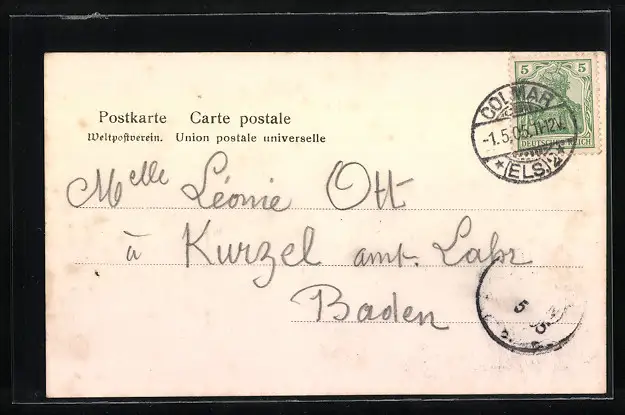 Postkarte Carte postale
Weltpostverein. Union postale universelle
5 5
DEUTSCHES REICH
COLMAR
-1.5.05.11-12V.
*(ELS.)2*
Melle Léonie Ott
à Kurzel amt. Lahr
Baden
5